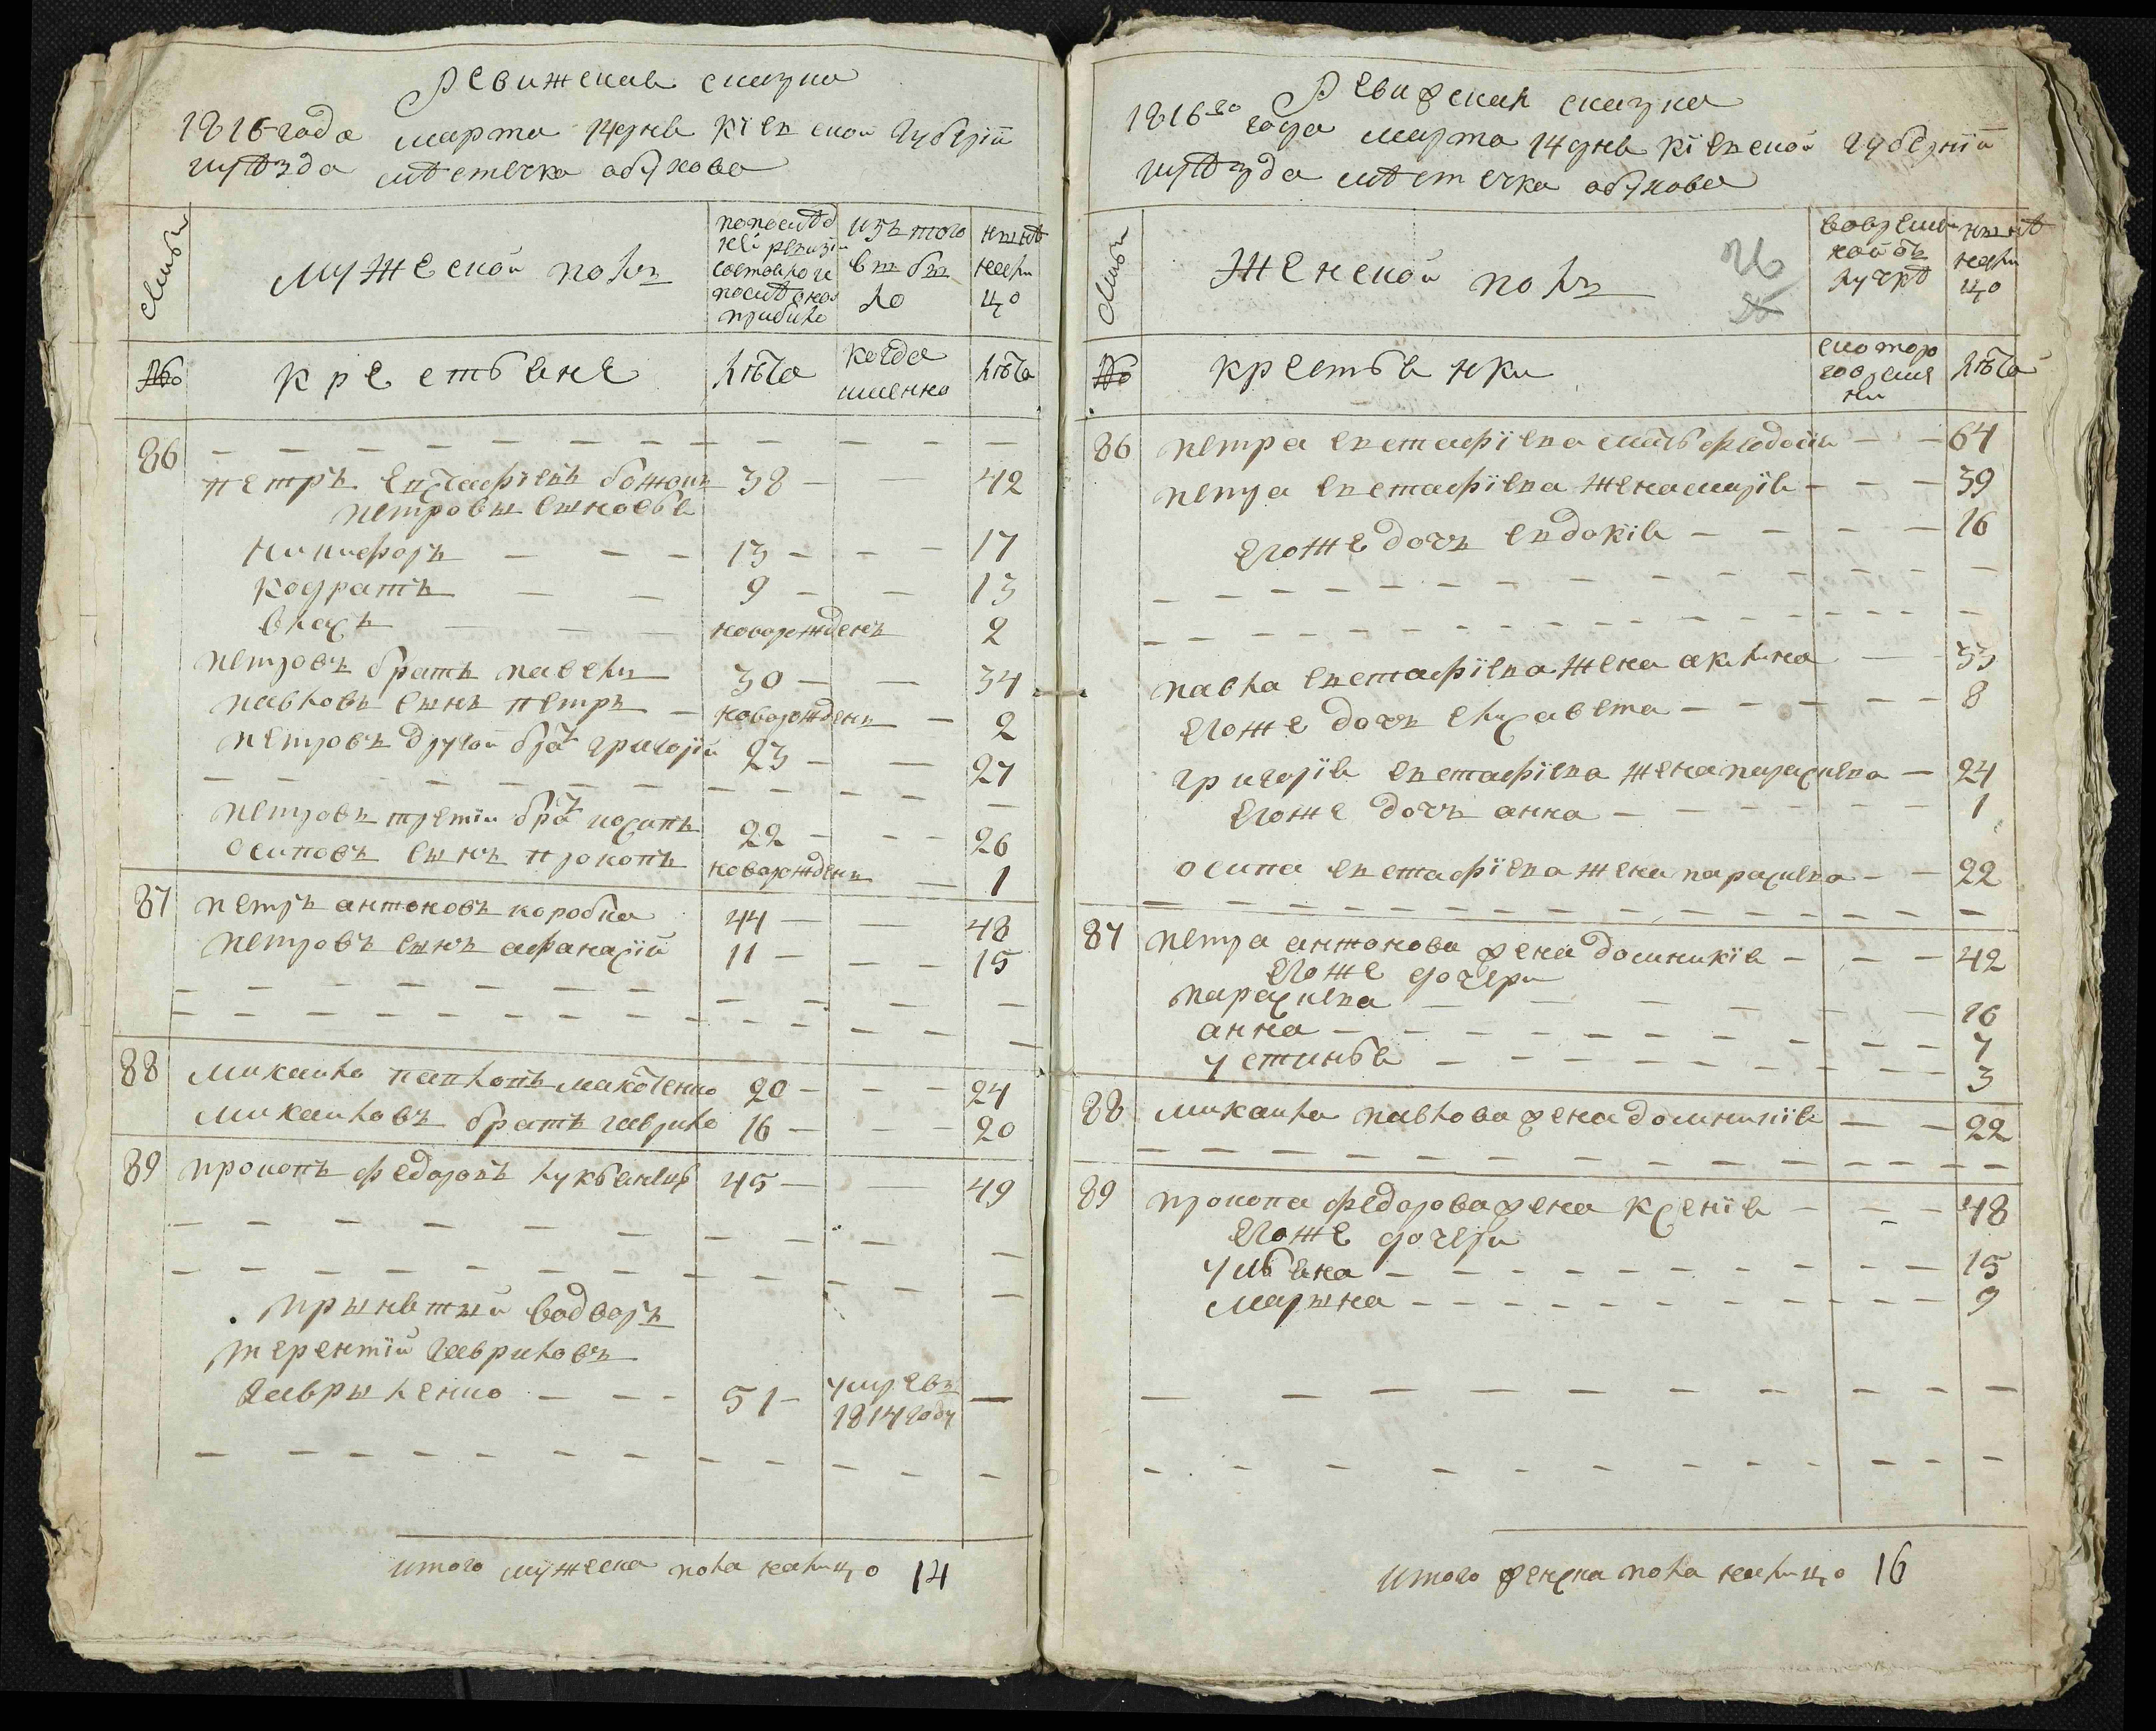 Ревижская сказка
1816 года марта 14 дня кіевской губерніи
уѣзда мѣстечка обухова
семьи
мужеской полъ
по послѣд
ней ревизіи
состояло и
послѣ оной
прибыло
изъ того
выбы
ло
нынѣ
нали
цо
№
крестьяне
лѣта
когда
именно
лѣта
86
петръ евстафіевъ божокъ 38 42
петровы сыновья
никифоръ 13 17
кодратъ 9 13
власъ новорожденъ 2
петровъ братъ павелъ 30 34
павловъ сынъ петръ новорожденъ 2
петровъ другой братъ григорій 23 27
петровъ третій братъ иосипъ 22 26
осиповъ сынъ прокопъ новорожденъ 1
87 петръ антоновъ коробка 44 48
петровъ сынъ афанасій 11 15
88 михаило павловъ 20 24
михаиловъ братъ гаврило 16 20
89 прокопъ федоровъ 45 49
прынятый водворъ
терентій гавриловъ
гаврыленко 51 умре въ
1814 году
итого мужеска пола налицо 14
Ревизская сказка
1816-го года марта 14 дня кіевской губерніи
уѣзда мѣстечка обухова
семьи
женской полъ
во времен
ной отъ
лучкѣ
нынѣ
нали
цо
№
крестьянки
с котор
го време
ни
лѣта
86 петра евстафіева мать феодосия 64
петра евстафіева жена марія 39
егоже дочъ евдокія 16
павла евстафіева жена акилина 33
егоже дочъ елисавета 8
григорія евстафіева жена парасцева 24
егоже дочъ анна 1
осипа евстафіева жена парасцева 22
87 петра антонова жена доминикія 42
егоже дочери
парасцева 16
анна 7
устинья 3
88 михаила павлова жена доминикія 22
89 прокопа федорова жена ксенія 48
егоже дочери
ульяна 15
марына 9
итого женска пола налицо 16